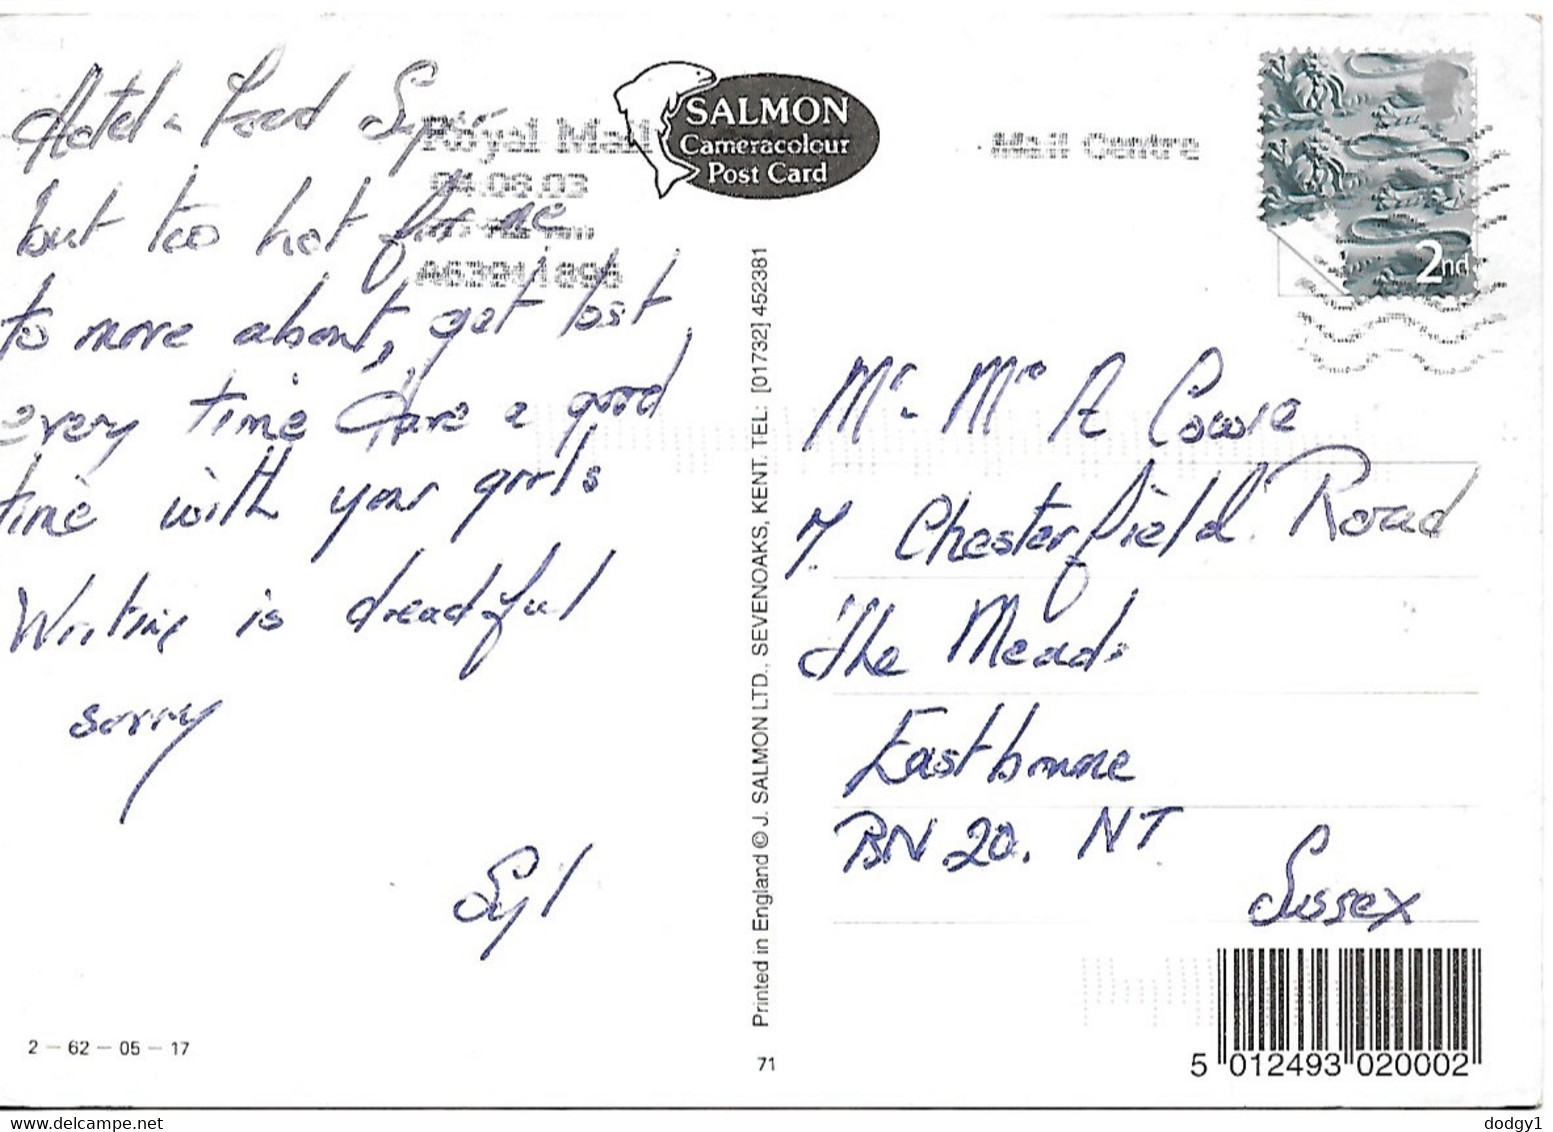 Hotel & Food Super
but too hot for me
to move about, get lost
every time Have a good
time with your girls
Writing is dreadful
sorry
Syl
2 – 62 – 05 – 17
Royal Mail
04.06.03
SALMON
Cameracolour
Post Card
Mail Centre
2nd
Printed in England © J. SALMON LTD., SEVENOAKS, KENT. TEL: [01732] 452381
71
Mr & Mrs A Cowie
7 Chesterfield Road
The Meads
Eastbourne
BN 20. NT
Sussex
5 012493 020002
dodgy1